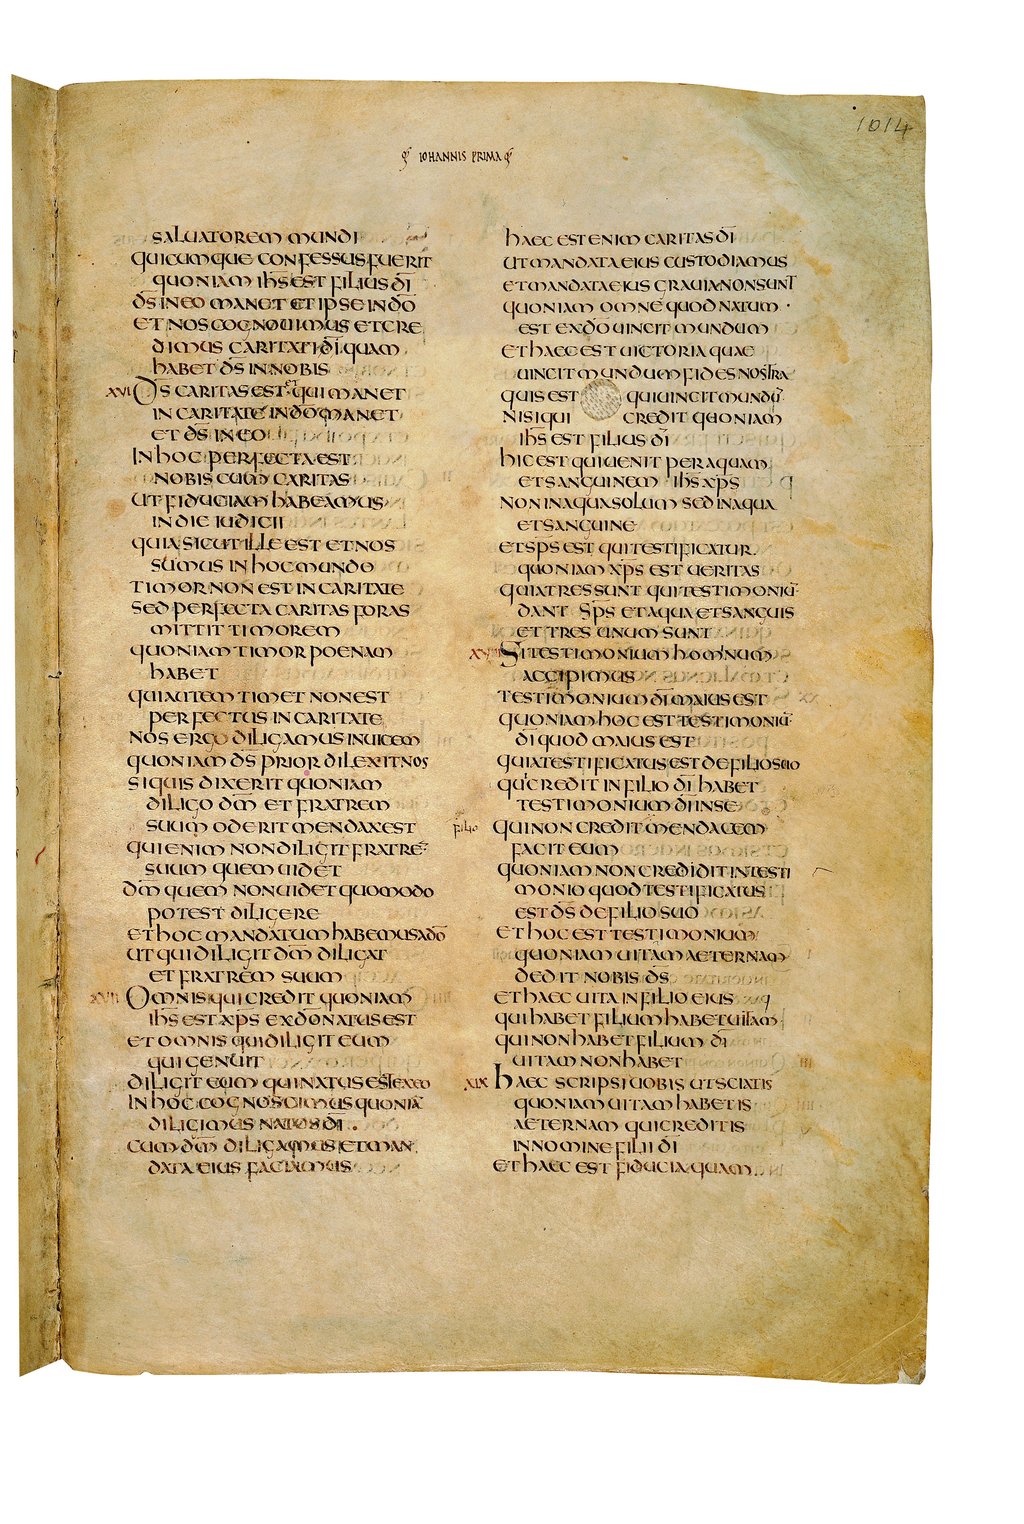 1014
IOHANNIS PRIMA
SALUATOREM MUNDI
QUICUMQUE CONFESSUS FUERIT
QUONIAM IHS EST FILIUS DI
DS IN EO MANET ET IPSE IN DO
ET NOS COGNOUIMUS ET CRE
DIMUS CARITATI DI QUAM
HABET DS IN NOBIS
XVI DS CARITAS EST ET QUI MANET
IN CARITATE IN DO MANET
ET DS IN EO
IN HOC PERFECTA EST
NOBIS CUM CARITAS
UT FIDUCIAM HABEAMUS
IN DIE IUDICII
QUIA SICUT ILLE EST ET NOS
SUMUS IN HOC MUNDO
TIMOR NON EST IN CARITATE
SED PERFECTA CARITAS FORAS
MITTIT TIMOREM
QUONIAM TIMOR POENAM
HABET
QUI AUTEM TIMET NON EST
PERFECTUS IN CARITATE
NOS ERGO DILIGAMUS INUICEM
QUONIAM DS PRIOR DILEXIT NOS
SI QUIS DIXERIT QUONIAM
DILIGO DM ET FRATREM
SUUM ODERIT MENDAX EST
QUI ENIM NON DILIGIT FRATRE
SUUM QUEM UIDET
DM QUEM NON UIDET QUOMODO
POTEST DILIGERE
ET HOC MANDATUM HABEMUS A DO
UT QUI DILIGIT DM DILIGAT
ET FRATREM SUUM
XVII OMNIS QUI CREDIT QUONIAM
IHS EST XPS EX DO NATUS EST
ET OMNIS QUI DILIGIT EUM
QUI GENUIT
DILIGIT EUM QUI NATUS EST EX EO
IN HOC COGNOSCIMUS QUONIA
DILIGIMUS NATOS DI
CUM DM DILIGAMUS ET MAN
DATA EIUS FACIAMUS
HAEC EST ENIM CARITAS DI
UT MANDATA EIUS CUSTODIAMUS
ET MANDATA EIUS GRAUIA NON SUNT
QUONIAM OMNE QUOD NATUM
EST EX DO UINCIT MUNDUM
ET HAEC EST UICTORIA QUAE
UINCIT MUNDUM FIDES NOSTRA
QUIS EST QUI UINCIT MUNDU
NISI QUI CREDIT QUONIAM
IHS EST FILIUS DI
HIC EST QUI UENIT PER AQUAM
ET SANGUINEM IHS XPS
NON IN AQUA SOLUM SED IN AQUA
ET SANGUINE
ET SPS EST QUI TESTIFICATUR
QUONIAM XPS EST UERITAS
QUIA TRES SUNT QUI TESTIMONIU
DANT SPS ET AQUA ET SANGUIS
ET TRES UNUM SUNT
XVIII SI TESTIMONIUM HOMINUM
ACCIPIMUS
TESTIMONIUM DI MAIUS EST
QUONIAM HOC EST TESTIMONIU
DI QUOD MAIUS EST
QUIA TESTIFICATUS EST DE FILIO SUO
QUI CREDIT IN FILIO DI HABET
TESTIMONIUM DI IN SE
filio QUI NON CREDIT MENDACEM
FACIT EUM
QUONIAM NON CREDIDIT IN TESTI
MONIO QUOD TESTIFICATUS
EST DS DE FILIO SUO
ET HOC EST TESTIMONIUM
QUONIAM UITAM AETERNAM
DEDIT NOBIS DS
ET HAEC UITA IN FILIO EIUS
QUI HABET FILIUM HABET UITAM
QUI NON HABET FILIUM DI
UITAM NON HABET
XIX HAEC SCRIPSI UOBIS UT SCIATIS
QUONIAM UITAM HABETIS
AETERNAM QUI CREDITIS
IN NOMINE FILII DI
ET HAEC EST FIDUCIA QUAM